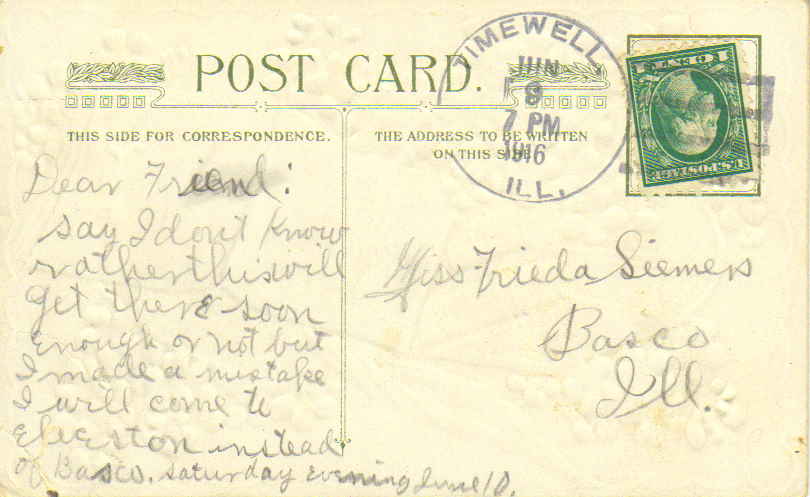 POST CARD.
THIS SIDE FOR CORRESPONDENCE.
THE ADDRESS TO BE WRITTEN
ON THIS SIDE
TIMEWELL
JUN
8
7 PM
1916
ILL.
U.S. POSTAGE
1 CENT 1
Dear Friend:
say I dont know
rather this will
get there soon
enough or not but
I made a mistake
I will come to
Elveston instead
of Basco. Saturday evening June 10.
Miss Frieda Siemers
Basco
Ill.